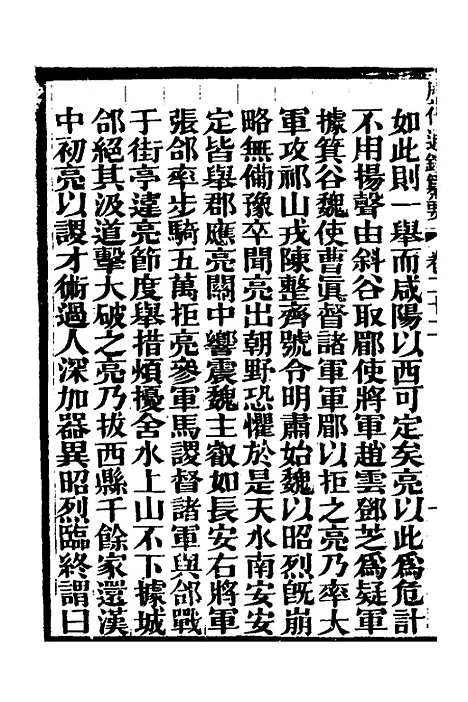 如此則一舉而咸陽以西可定矣亮以此爲危計
不用揚聲由斜谷取郿使將軍趙雲鄧芝爲疑軍
據箕谷魏使曹眞督諸軍軍郿以拒之亮乃率大
軍攻祁山戎陳整齊號令明肅始魏以昭烈旣崩
略無備豫卒聞亮出朝野恐懼於是天水南安安
定皆舉郡應亮關中響震魏主叡如長安右將軍
張郃率步騎五萬拒亮參軍馬謖督諸軍與郃戰
于街亭違亮節度舉措煩擾舍水上山不下據城
郃絕其汲道擊大破之亮乃拔西縣千餘家還漢
中初亮以謖才術過人深加器異昭烈臨終謂曰